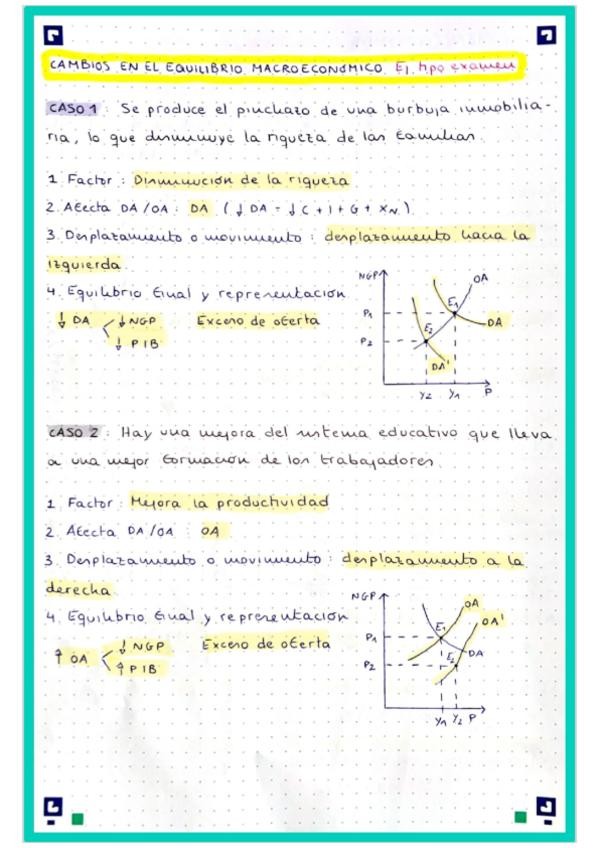 CAMBIOS EN EL EQUILIBRIO MACROECONÓMICO. Ej. tipo examen
CASO 1: Se produce el pinchazo de una burbuja inmobilia-
ria, lo que disminuye la riqueza de las familias.
1. Factor: Disminución de la riqueza
2. Afecta DA/OA: DA (↓DA = ↓C + I + G + XN)
3. Desplazamiento o movimiento: desplazamiento hacia la
izquierda.
4. Equilibrio final y representación
↓ DA
↓ NGP
↓ PIB
Exceso de oferta
NGP
OA
P1
E1
DA
P2
E2
DA'
Y2 Y1 P
CASO 2: Hay una mejora del sistema educativo que lleva
a una mejor formación de los trabajadores.
1. Factor: Mejora la productividad
2. Afecta DA/OA: OA
3. Desplazamiento o movimiento: desplazamiento a la
derecha.
4. Equilibrio final y representación
↑ OA
↓ NGP
↑ PIB
Exceso de oferta
NGP
OA
OA'
P1
E1
DA
P2
E2
Y1 Y2 P